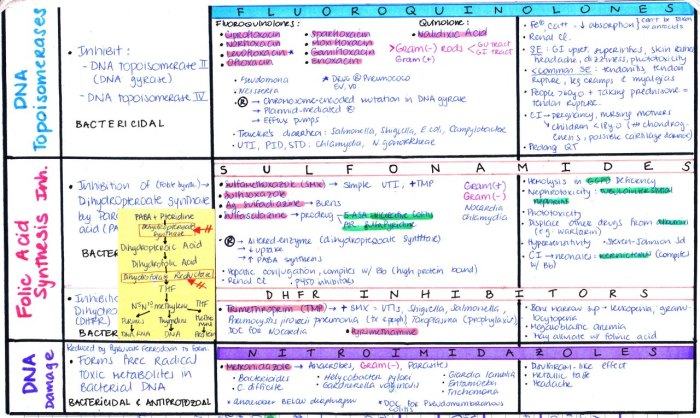 DNA Topoisomerases
• Inhibit:
- DNA topoisomerase II
(DNA gyrase)
- DNA topoisomerase IV
BACTERICIDAL
FLUOROQUINOLONES
Fluoroquinolones:
Ciprofloxacin
Norfloxacin
Levofloxacin
Ofloxacin
Sparfloxacin
Moxifloxacin
Gemifloxacin
Enoxacin
Quinolone:
Nalidixic Acid
> Gram(-) Rods < GU tract
GI tract
Gram(+)
• Pseudomona
• Neisseria
* DRUG @ Pneumococo
• (R) → Chromosome-encoded mutation in DNA gyrase
→ Plasmid-mediated
→ Efflux pumps
• Traveler's diarrhea: Salmonella, Shigella, E. coli, Campylobacter
• UTI, PID, STD: Chlamydia, N. gonorrheae
• Renal CL
• SE: GI upset, superinfxs, skin rash,
headache, dizziness, phototoxicity
< common SE: tendonitis, tendon
rupture, leg cramps & myalgias
• People >60yo + taking prednisone =
tendon rupture.
• CI → pregnancy, nursing mothers
children <18yo
• Prolong QT
Folic Acid Synthesis Inh.
• Inhibition of
Dihydropteroate Synthase
by PABA
acid (PA
PABA + Pteridine
Dihydropteroate
Synthase
Dihydropteroic Acid
Dihydrofolic Acid
Dihydrofolate Reductase
THF
N5N10 methylene THF
Purines
Thymidine
DNA
SULFONAMIDES
• Sulfamethoxazole (SMX) → Simple UTI, +TMP
• Sulfisoxazole
• Ag Sulfadiazine → Burns
• Sulfasalazine → prodrug
5-ASA
Sulfapyridine
Gram(+)
Gram(-)
Nocardia
Chlamydia
• (R) → Altered enzyme (dihydropteroate synthase)
→ ↓ uptake
→ ↑ PABA synthesis
• Hepatic conjugation, competes w/ Bb (high protein bound)
• Renal CL
• P450 inhibitors
• Hemolysis in G6PD Deficiency
• Nephrotoxicity: tubulointerstitial
nephritis
• Phototoxicity
• Displace other drugs from albumin
(e.g. warfarin)
• Hypersensitivity → Steven-Johnson Sd
• CI → neonates: kernicterus (competes
w/ Bb)
DHFR INHIBITORS
• Inhibition
Dihydrofolate
(DHFR)
• Trimethoprim (TMP) → + SMX = UTIs, Shigella, Salmonella,
Pneumocystis jiroveci pneumonia (tx & ppx) Toxoplasma (prophylaxis)
• DOC for Nocardia
• Pyrimethamine
• Bone marrow sup → leukopenia, granulo
cytopenia
• Megaloblastic anemia
• May alleviate w/ folinic acid
DNA Damage
Reduced by Pyruvate Ferredoxin to form:
• Forms Free Radical
Toxic metabolites in
Bacterial DNA
BACTERICIDAL & ANTIPROTOZOAL
NITROIMIDAZOLES
• Metronidazole → Anaerobes, Gram(-), Parasites
• Bacteroides
• C. difficile
• Helycobacter pylori
• Gardnerella vaginalis
• Giardia lamblia
• Entamoeba
• Trichomona
• Anaerobes below diaphragm
• DOC for Pseudomembranous
Colitis
• Disulfiram-like effect
• Metallic taste
• Headache